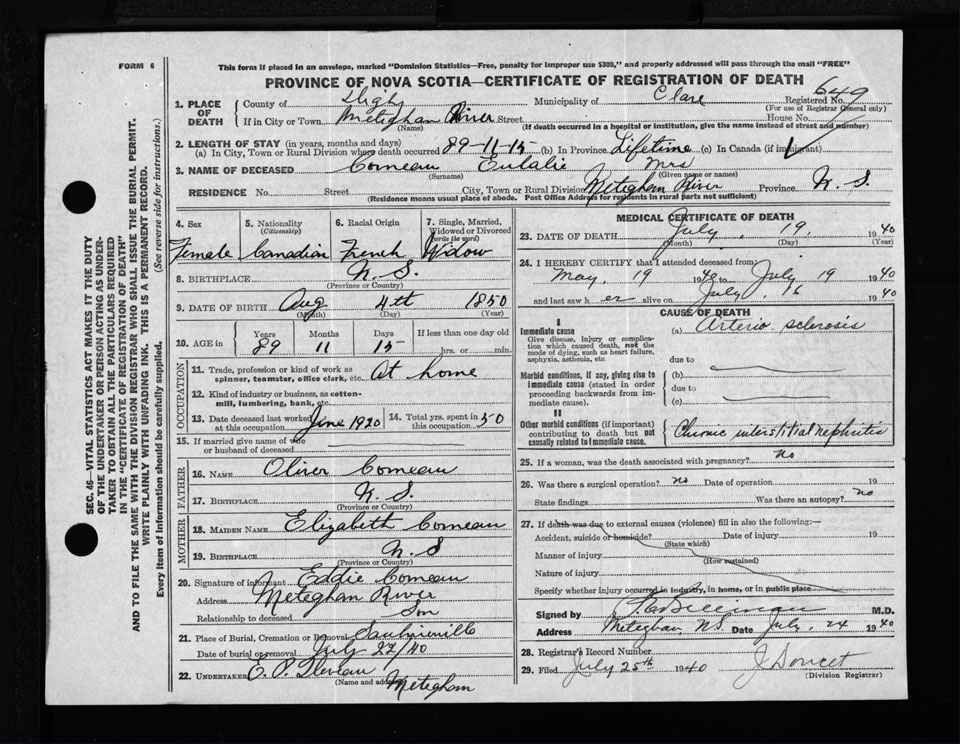 FORM 6
This form if placed in an envelope, marked "Dominion Statistics—Free, penalty for improper use $300," and properly addressed will pass through the mail "FREE"
PROVINCE OF NOVA SCOTIA—CERTIFICATE OF REGISTRATION OF DEATH
1. PLACE OF DEATH
County of Digby Municipality of Clare Registered No. 649
(For use of Registrar General only)
If in City or Town Meteghan River Street House No.
(Name) (If death occurred in a hospital or institution, give the name instead of street and number)
2. LENGTH OF STAY (in years, months and days)
(a) In City, Town or Rural Division where death occurred 89-11-15 (b) In Province Lifetime (c) In Canada (if immigrant)
3. NAME OF DECEASED Comeau Eulalie Mrs
(Surname) (Given name or names)
RESIDENCE No. Street City, Town or Rural Division Meteghan River Province N. S.
(Residence means usual place of abode. Post Office Address for residents in rural parts not sufficient)
4. Sex Female
5. Nationality (Citizenship) Canadian
6. Racial Origin French
7. Single, Married, Widowed or Divorced (write the word) Widow
8. BIRTHPLACE N. S.
(Province or Country)
9. DATE OF BIRTH Aug 4th 1850
(Month) (Day) (Year)
10. AGE in Years 89 Months 11 Days 15 If less than one day old hrs. or min.
OCCUPATION
11. Trade, profession or kind of work as spinner, teamster, office clerk, etc. At home
12. Kind of industry or business, as cotton-mill, lumbering, bank, etc.
13. Date deceased last worked at this occupation June 1920
14. Total yrs. spent in this occupation 50
15. If married give name of wife or husband of deceased
FATHER
16. NAME Oliver Comeau
17. BIRTHPLACE N. S.
(Province or Country)
MOTHER
18. MAIDEN NAME Elizabeth Comeau
19. BIRTHPLACE N. S
(Province or Country)
20. Signature of informant Eddie Comeau
Address Meteghan River
Relationship to deceased Son
21. Place of Burial, Cremation or Removal Saulnierville
Date of burial or removal July 22/40
22. UNDERTAKER E. P. Theriau Meteghan
(Name and address)
MEDICAL CERTIFICATE OF DEATH
23. DATE OF DEATH July 19, 1940
(Month) (Day) (Year)
24. I HEREBY CERTIFY that I attended deceased from:
May 19 1940 to July 19 1940
and last saw h er alive on July 16 1940
CAUSE OF DEATH
I
Immediate cause (a) Arterio sclerosis
Give disease, injury or complication which caused death, not the mode of dying, such as heart failure, asphyxia, asthenia, etc.
due to
Morbid conditions, if any, giving rise to immediate cause (stated in order proceeding backwards from immediate cause).
(b)
due to
(c)
II
Other morbid conditions (if important) contributing to death but not causally related to immediate cause.
Chronic interstitial nephritis
25. If a woman, was the death associated with pregnancy? no
26. Was there a surgical operation? no Date of operation 19
State findings Was there an autopsy? no
27. If death was due to external causes (violence) fill in also the following:—
Accident, suicide or homicide? Date of injury 19
(State which)
Manner of injury
(How sustained)
Nature of injury
Specify whether injury occurred in industry, in home, or in public place
Signed by M.D.
Address Meteghan, N.S. Date July. 24 1940
28. Registrar's Record Number
29. Filed July 25th 1940 J Doucet
(Division Registrar)
SEC. 46—VITAL STATISTICS ACT MAKES IT THE DUTY
OF THE UNDERTAKER OR PERSON ACTING AS UNDER-
TAKER TO OBTAIN ALL THE PARTICULARS REQUIRED
IN THE "CERTIFICATE OF REGISTRATION OF DEATH"
AND TO FILE THE SAME WITH THE DIVISION REGISTRAR WHO SHALL ISSUE THE BURIAL PERMIT.
WRITE PLAINLY WITH UNFADING INK. THIS IS A PERMANENT RECORD.
Every item of information should be carefully supplied. (See reverse side for instructions.)